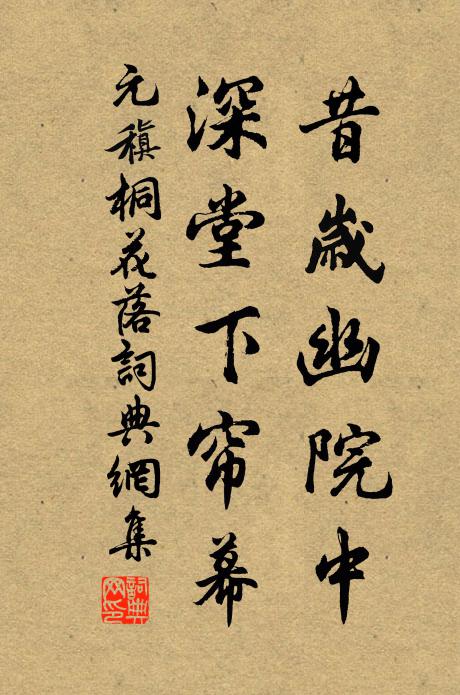 昔歲幽院中
深堂下帘幕
元稹桐花落詞典網集
詞典网印